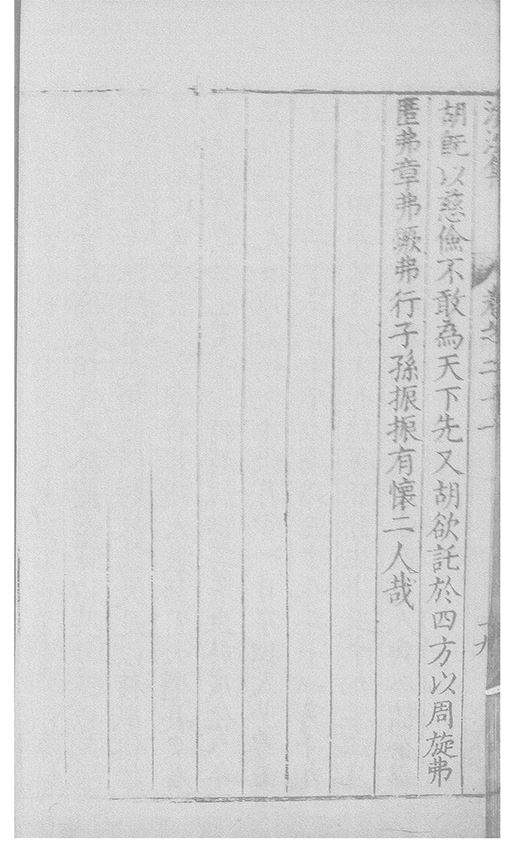 胡既以慈儉不敢為天下先又胡欲託於四方以周旋弗
匿弗章弗蹶弗行子孫振振有懷二人哉